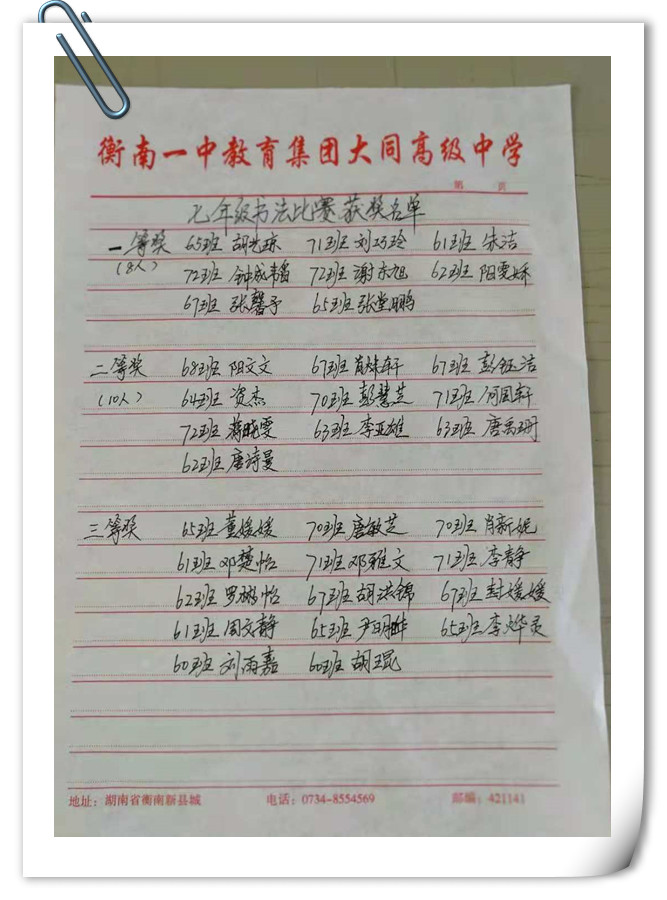 衡南一中教育集团大同高级中学
第 页
七年级书法比赛获奖名单
一等奖 65班 胡光琼 71班 刘巧玲 61班 朱洁
(8人) 72班 钟成韬 72班 谢东旭 62班 阳雯娇
67班 张馨予 65班 张堂鹏
二等奖 68班 阳文文 67班 肖炜轩 67班 彭钰洁
(10人) 64班 资杰 70班 彭慧芝 71班 何国轩
72班 蒋晓雯 63班 李亚雄 63班 唐禹珊
62班 唐诗曼
三等奖 65班 董媛媛 70班 唐敏芝 70班 肖新妮
61班 邓楚怡 71班 邓雅文 71班 李静
62班 罗怡 67班 胡洪锦 67班 封媛媛
61班 周文静 65班 尹明 65班 李烨灵
60班 刘雨嘉 60班 胡琨
地址:湖南省衡南新县城 电话:0734-8554569 邮编:421141